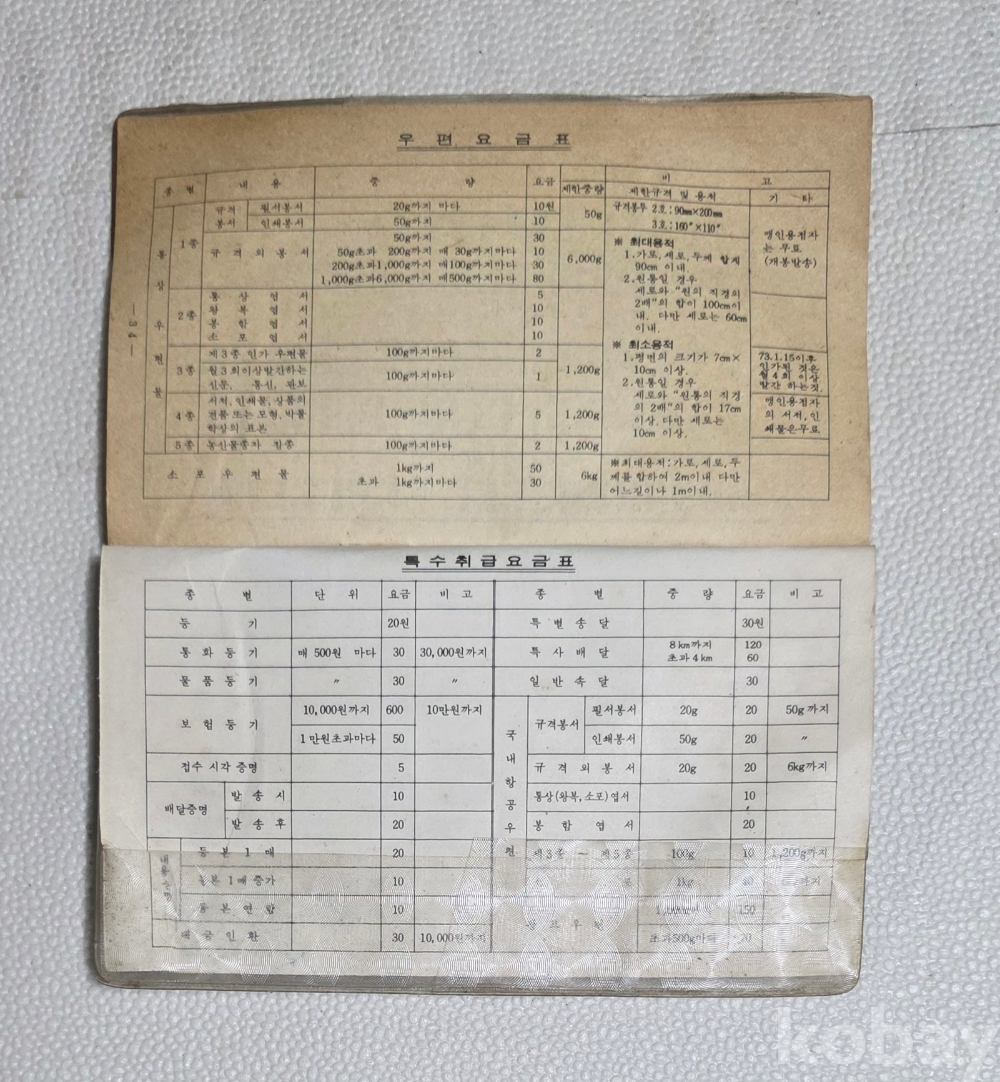 우편요금표
종별 내용 중량 요금 비고
제한중량 제한규격 및 용적 기타
통상우편물
1종 규격봉서 필서봉서 20g까지 마다 10원 50g 규격봉투 2호:90㎜×200㎜
인쇄봉서 50g까지 10 3호:160″×110″
규격외봉서 50g까지 30 6,000g
50g초과 200g까지 매 30g까지마다 10
200g초과1,000g까지 매100g까지마다 30
1,000g초과6,000g까지 매500g까지마다 80
맹인용점자
는 무료
(개봉발송)
※ 최대용적
1.가로,세로,두께 합계
90cm 이내.
2.원통일 경우
세로와 "원의 직경의
2배"의 합이 100cm이
내. 다만 세로는 60cm
이내.
※ 최소용적
1.평면의 크기가 7cm×
10cm 이상.
2.원통일 경우
세로와 "원통의 직경
의 2배"의 합이 17cm
이상.다만 세로는
10cm 이상.
2종 통상엽서 5
왕복엽서 10
봉함엽서 10
소포엽서 10
3종 제3종 인가 우편물 100g까지마다 2 1,200g
월3회이상발간하는
신문, 통신, 관보 100g까지마다 1
73.1.15이후
인가된 것은
월4회 이상
발간 하는것.
4종 서적,인쇄물,상품의
견품 또는 모형,박물
학상의 표본 100g까지마다 5 1,200g
맹인용점자
의 서적,인
쇄물은무료
5종 농산물종자 잠종 100g까지마다 2 1,200g
소포우편물 1kg까지 50 6kg
초과 1kg까지마다 30
※최대용적:가로,세로,두
께를 합하여 2m이내 다만
어느길이나 1m이내.
—34—
특수취급요금표
종별 단위 요금 비고
등기 20원
통화등기 매 500원 마다 30 30,000원까지
물품등기 〃 30 〃
보험등기 10,000원까지 600 10만원까지
1만원초과마다 50
접수 시각 증명 5
배달증명 발송시 10
발송후 20
등본1매 20
등본1매증가 10
등본연람 10
대금인환 30 10,000원까지
종별 중량 요금 비고
특별송달 30원
특사배달 8km까지 120
초과4km 60
일반속달 30
국내항공우편
규격봉서 필서봉서 20g 20 50g까지
인쇄봉서 50g 20 〃
규격외봉서 20g 20 6kg까지
통상(왕복,소포)엽서 10
봉함엽서 20
제3종～제5종 100g 10 1,200g까지
1kg
150
초과500g마다 20
kobay